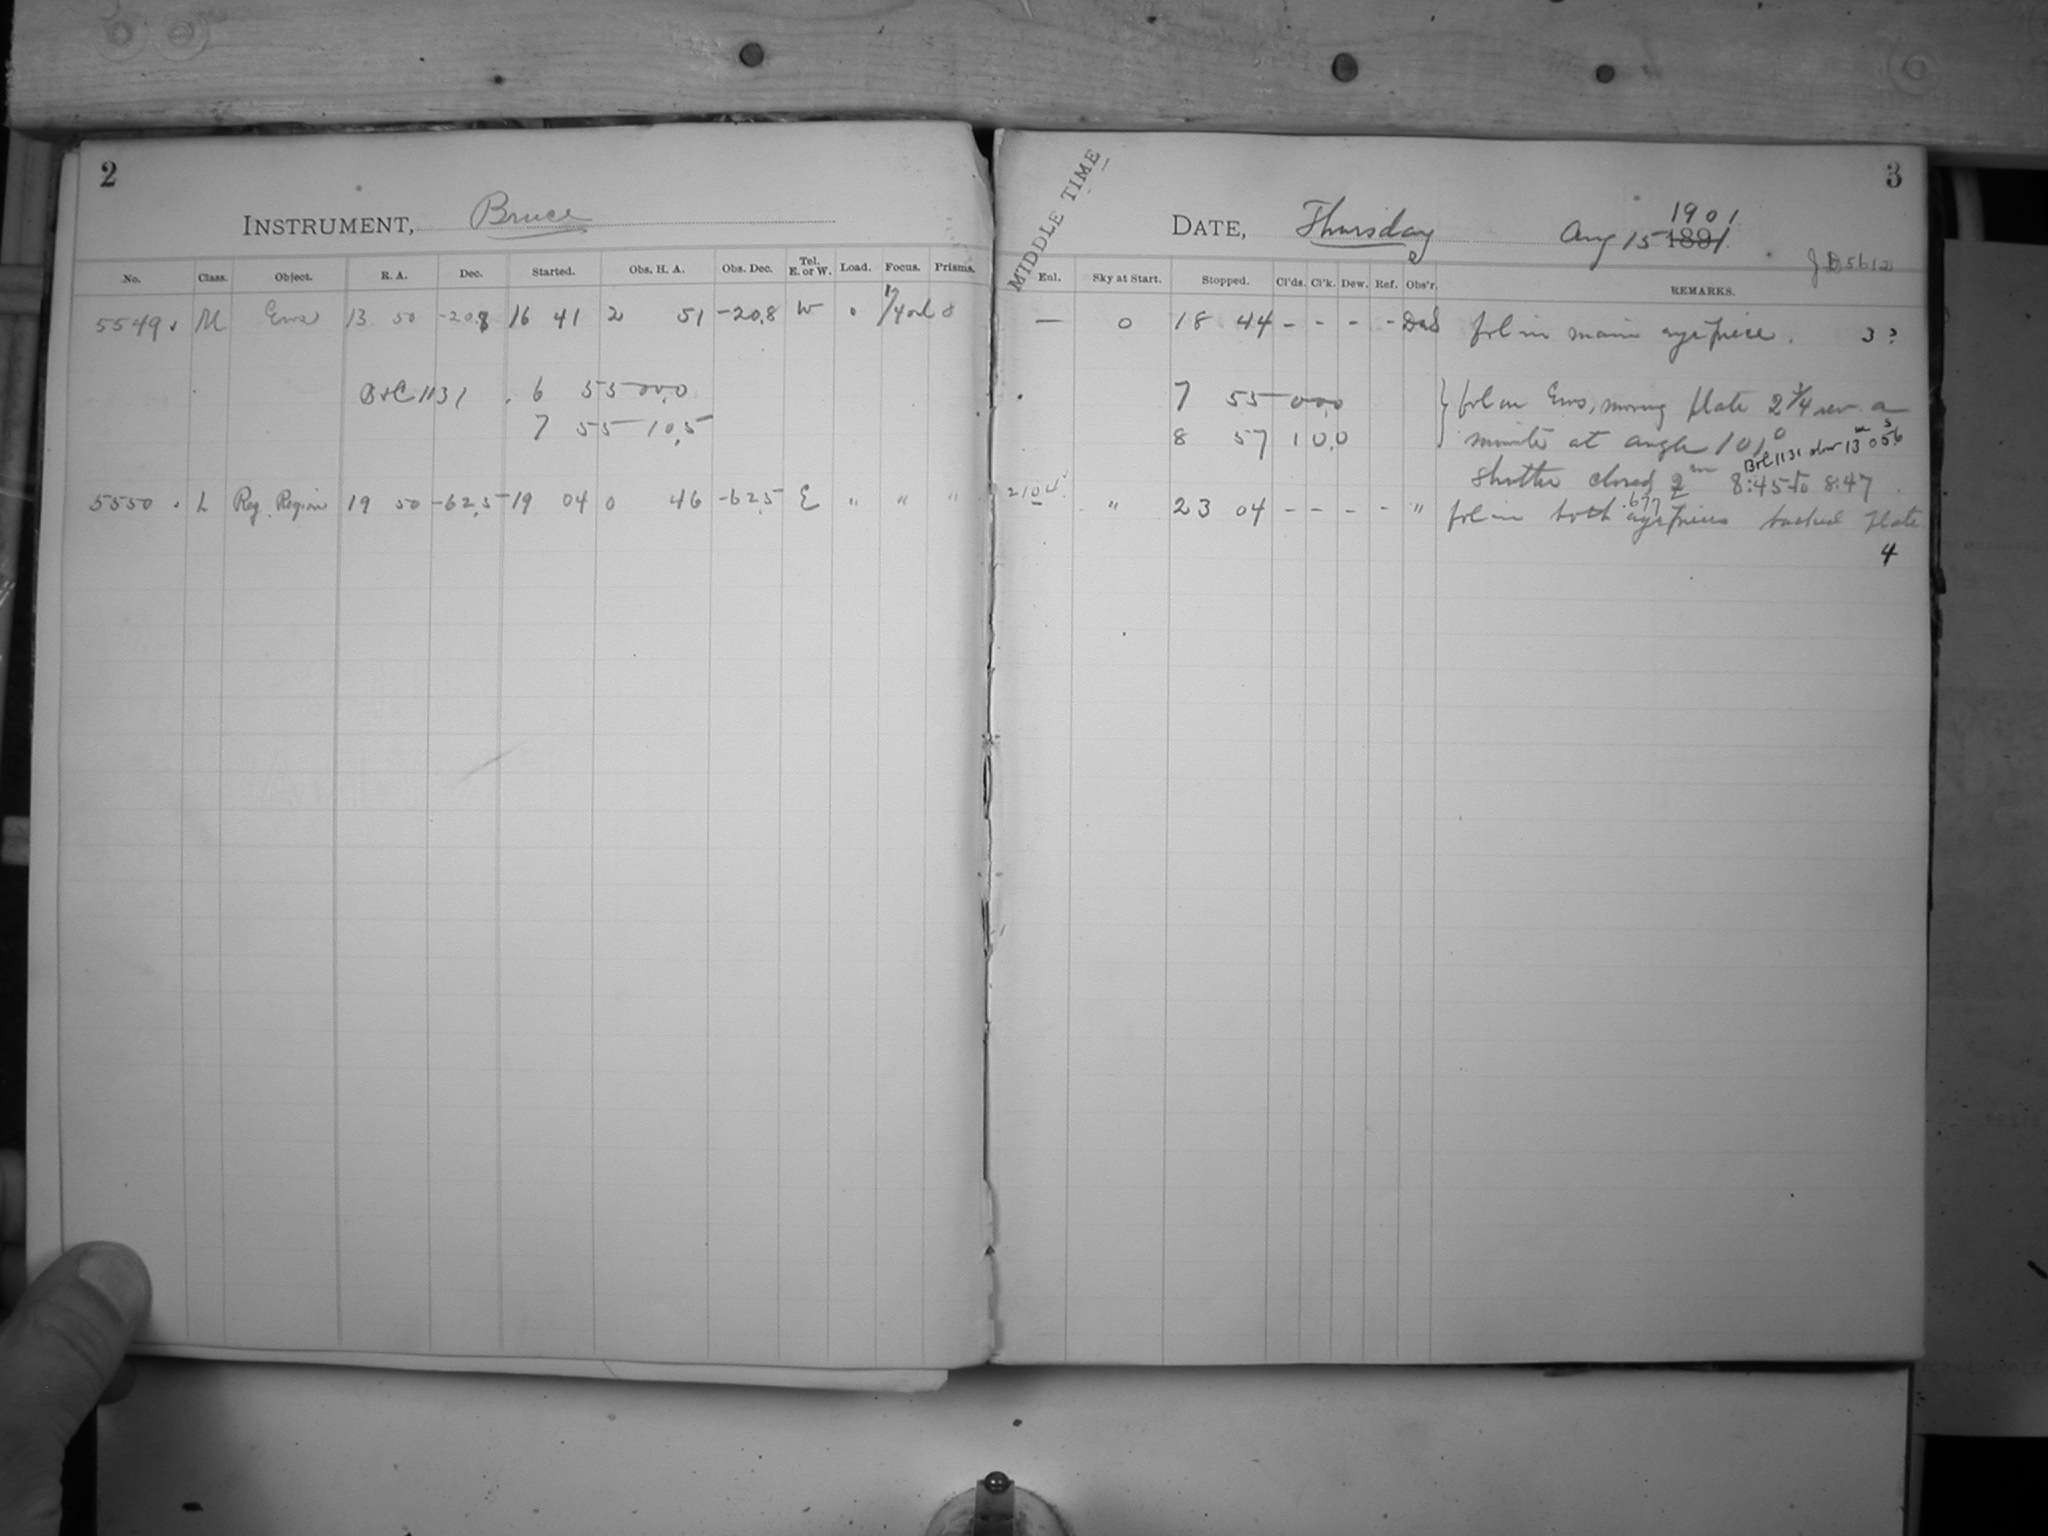 2
INSTRUMENT, Bruce
No. Class. Object. R. A. Dec. Started. Obs. H. A. Obs. Dec. Tel. E. or W. Load. Focus. Prisms.
5549 M Eros 13 50 -20.8 16 41 2 51 -20.8 W
B+C 1131 6 55 00.0
7 55 10.5
5550 L Reg. Region 19 50 -62.5 19 04 0 46 -62.5 E " " "
MIDDLE TIME
3
DATE, Thursday Aug 15 1891 1901
Eul. Sky at Start. Stopped. Cl'ds. Cl'k. Dew. Ref. Obs'r. REMARKS.
— 0 18 44 - - - - fol in main eyepiece. 3?
7 55 00.0 fol on Eros, moving plate 2 1/4 rev a
8 57 10.0 minute at angle 101°
B+C 1131 slow 13m 05s6
shutter closed 2m 8:45 to 8:47
2104 " 23 04 - - - - " fol in both eyepieces backed plate
.677
4